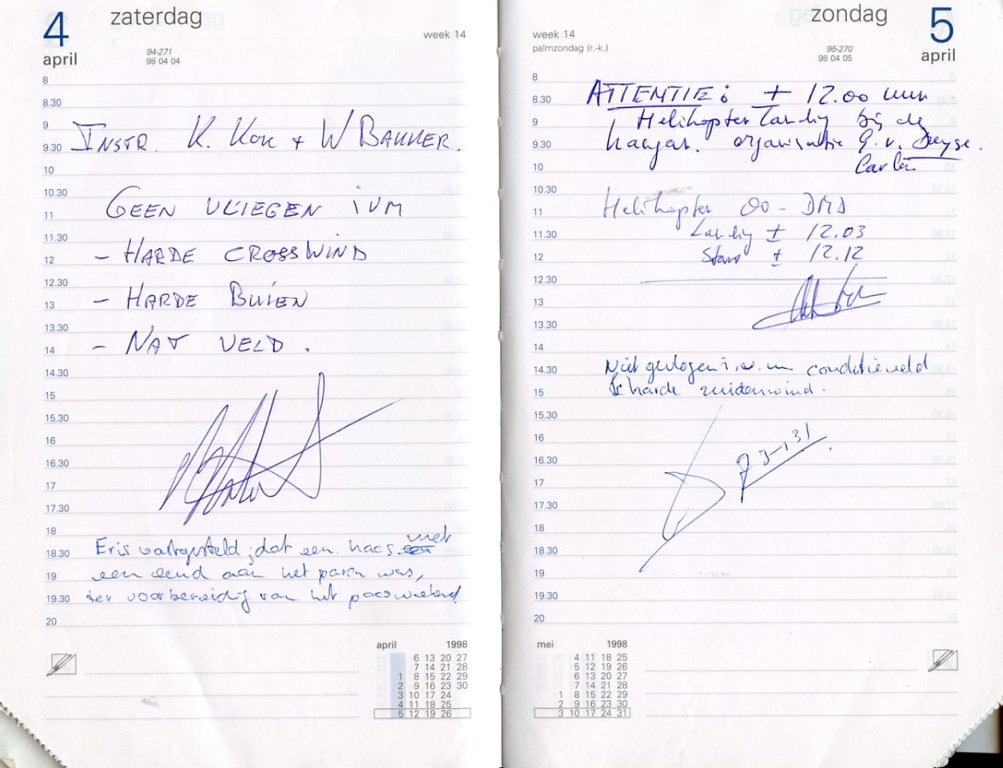 4 zaterdag
april
94-271
98 04 04
week 14
8
8.30
9
9.30
INSTR. K. KOK + W BAKKER.
10
10.30
11
GEEN VLIEGEN IVM
11.30
12
- HARDE CROSSWIND
12.30
13
- HARDE BUIEN
13.30
14
- NAT VELD.
14.30
15
15.30
16
16.30
17
17.30
18
18.30
Er is vastgesteld, dat een haas met
19
een eend aan het paren was,
19.30
ter voorbereiding van het paasweekend
20
april 1998
6 13 20 27
7 14 21 28
1 8 15 22 29
2 9 16 23 30
3 10 17 24
4 11 18 25
5 12 19 26
zondag 5
april
week 14
palmzondag (r.-k.)
95-270
98 04 05
8
8.30
ATTENTIE: ± 12.00 uur
9
Helikopter landing bij de
9.30
hangar. organisatie G. v.
10
10.30
11
Helikopter OO-DMD
11.30
Landing ± 12.03
12
Start ± 12.12
12.30
13
13.30
14
14.30
Niet gevlogen i.v.m conditie veld
15
& harde zuidenwind.
15.30
16
73-131
16.30
17
17.30
18
18.30
19
19.30
20
mei 1998
4 11 18 25
5 12 19 26
6 13 20 27
7 14 21 28
1 8 15 22 29
2 9 16 23 30
3 10 17 24 31